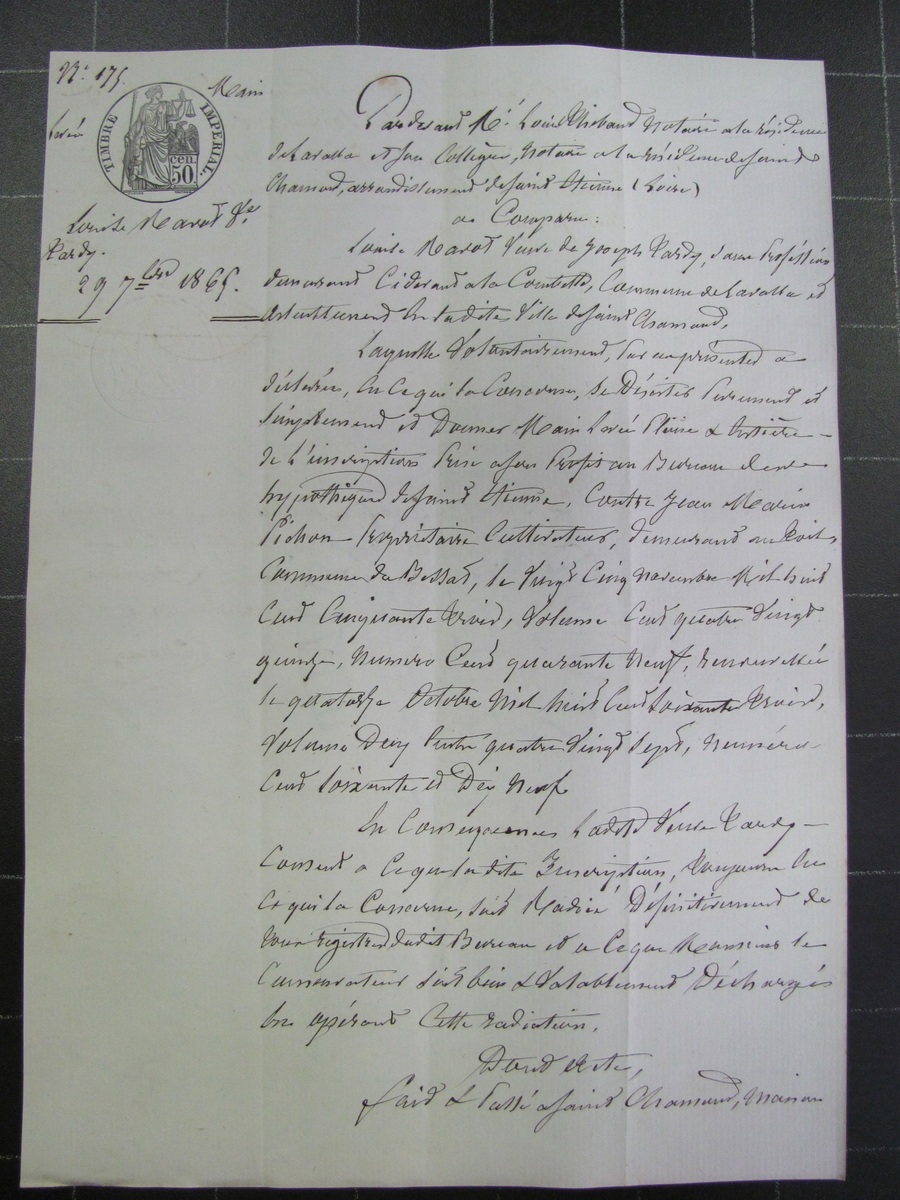 N° 175.
Main
levée
TIMBRE IMPERIAL.
cen. 50
Louise Marot Ve
Tardy.
29 7bre 1865.
Pardevant Me Louis Thibaud Notaire à la résidence
de Lavalla et son Collègue, Notaire à la résidence de Saint
Chamond, arrondissement de Saint Etienne (Loire)
a Comparu:
Louise Marot Veuve de Joseph Tardy, sans Profession
demeurant Ciderant à la Combette, Commune de Lavalla et
actuellement en ladite Ville de Saint Chamond.
Laquelle Volontairement, par ces présentes a
déclarée, en ce qui la Concerne, se Désister Purement et
Simplement et Donner Main levée Pleine & Entière
de l'inscription Prise à son Profit au Bureau des
hypothèques de Saint Etienne, Contre Jean Marie
Pichon Propriétaire Cultivateur, demeurant au Toil,
Commune de Bessat, le Vingt Cinq novembre Mil huit
Cent Cinquante Trois, Volume Cent quatre Vingt
quinze, numéro Cent quarante Neuf, renouvellée
le quatorze Octobre Mil huit Cent Soixante Trois,
Volume Deux Cents quatre Vingt Sept, Numéro
Cent Soixante et Dix Neuf
En Conséquence Ladite Veuve Tardy
Consent à ce que ladite Inscription, toujours En
Ce qui la Concerne, soit Radiée Définitivement de
tous registres dudit Bureau et à Ce que Monsieur le
Conservateur soit bien & Valablement Déchargés
En opérant Cette radiation.
Dont acte,
fait & Passé à Saint Chamond, maison